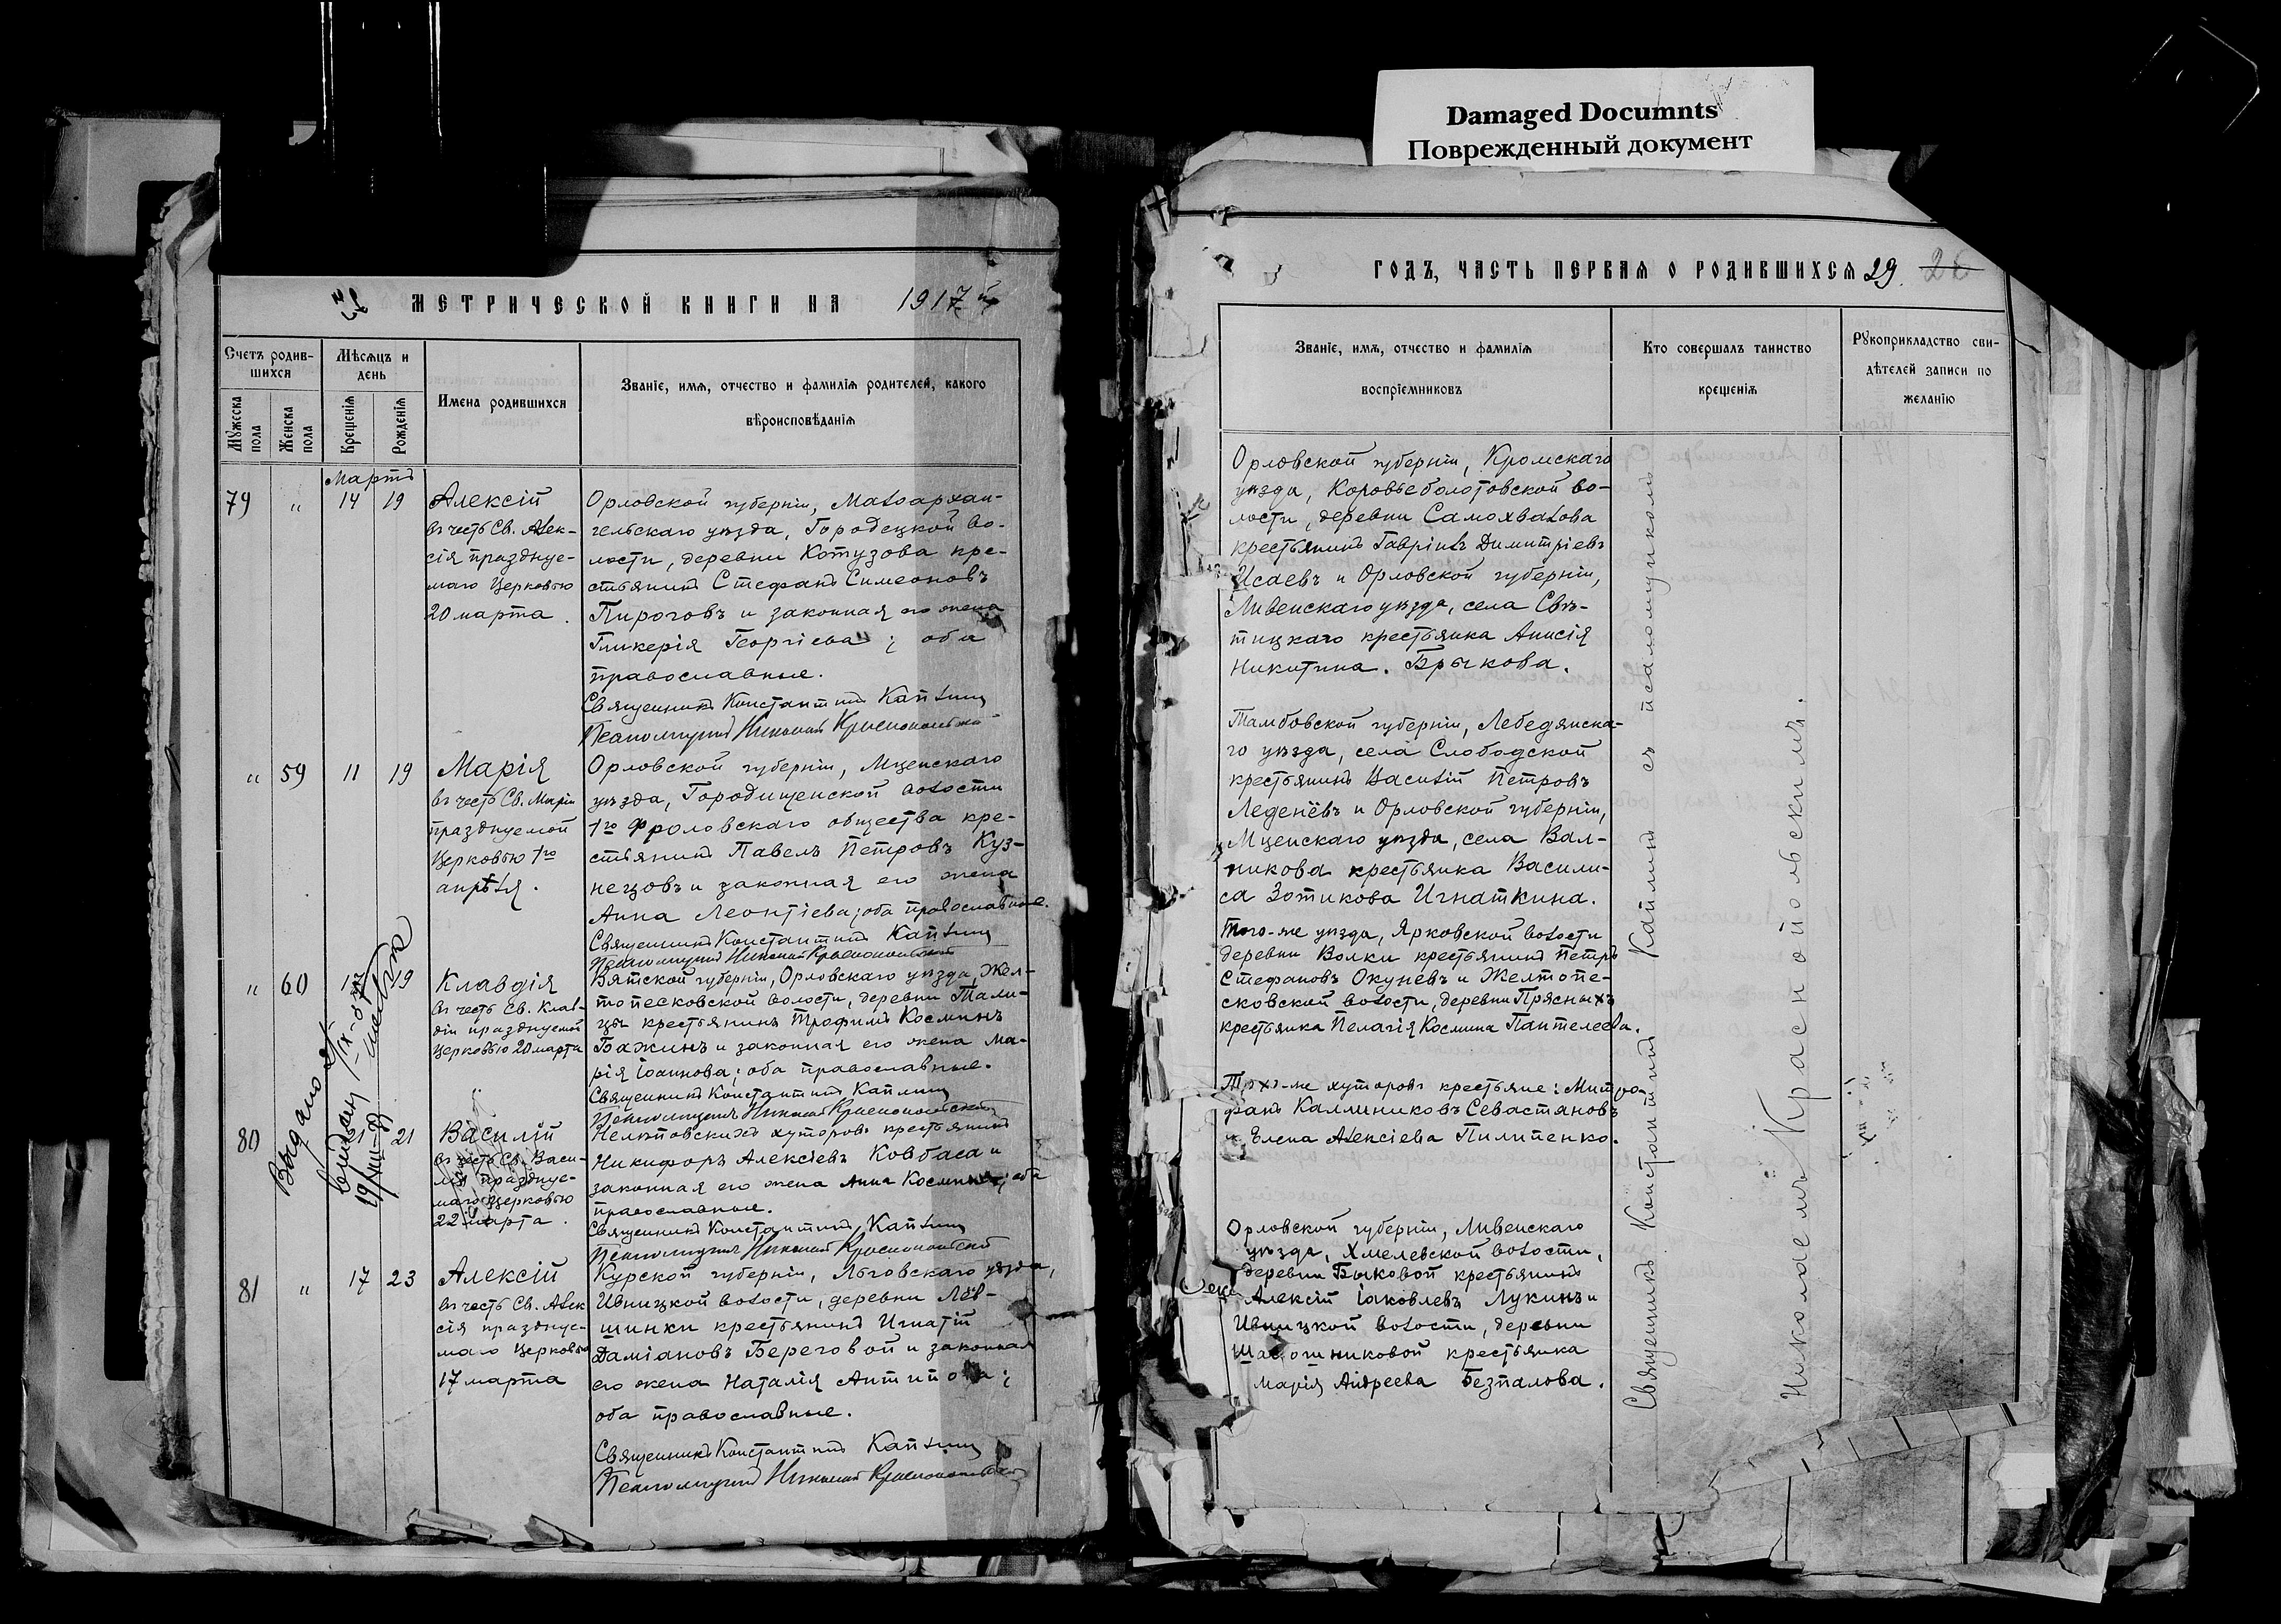 Damaged Documnts
Поврежденный документ
МЕТРИЧЕСКОЙ КНИГИ НА 1917 й
Счетъ родив-
шихся
Мѣсяцъ и
день
Имена родившихся
Званіе, имя, отчество и фамилія родителей, какого
вѣроисповѣданія
Мужеска пола
Женска пола
Крещенія
Рожденія
Мартъ
79 " 14 19
Алексій
въ честь Св. Алек-
сія празднуе-
маго Церковью
20 марта.
Орловской губерніи, Малоархан-
гельскаго уѣзда, Городецкой во-
лости, деревни Котузова кре-
стьянинъ Стефанъ Симеоновъ
Пироговъ и законная его жена
Гликерія Георгіева; оба
православные.
Священникъ Константинъ Каплинъ
Псаломщикъ Николай Краснопольскій
" 59 11 19
Марія
въ честь Св. Маріи
празднуемой
Церковью 1го
апрѣля.
Орловской губерніи, Мценскаго
уѣзда, Городищенской волости
1го Фроловскаго общества кре-
стьянинъ Павелъ Петровъ Куз-
нецовъ и законная его жена
Анна Леонтіева; оба православные.
Священникъ Константинъ Каплинъ
Псаломщикъ Николай Краснопольскій
" 60 19
Клавдія
въ честь Св. Клав-
діи празднуемой
Церковью 20 марта
Вятской губерніи, Орловскаго уѣзда, Жел-
топесковской волости, деревни Тали-
цы крестьянинъ Трофимъ Косминъ
Бажинъ и законная его жена Ма-
рія Іоаннова; оба православные.
Священникъ Константинъ Каплинъ
Псаломщикъ Николай Краснопольскій
Выдано
80 21
Василій
въ честь Св. Васи-
лія празднуе-
маго Церковью
22 марта.
хуторовъ крестьянинъ
Никифоръ Алексіевъ Ковбаса и
законная его жена Анна Космина; оба
православные.
Священникъ Константинъ Каплинъ
Псаломщикъ Николай Краснопольскій
81 " 17 23
Алексій
въ честь Св. Алек
сія празднуе-
маго Церковью
17 марта
Курской губерніи, Льговскаго уѣзда,
Ивницкой волости, деревни Лёв-
шинки крестьянинъ Игнатій
Даміановъ Береговой и законная
его жена Наталія Антипова;
оба православные.
Священникъ Константинъ Каплинъ
Псаломщикъ Николай Краснопольскій
ГОДЪ, ЧАСТЬ ПЕРВАЯ О РОДИВШИХСЯ 29
Званіе, имя, отчество и фамилія
воспріемниковъ
Кто совершалъ таинство
крещенія
Рукоприкладство сви-
дѣтелей записи по
желанію
Орловской губерніи, Кромскаго
уѣзда, Коровьеболотовской во-
лости, деревни Самохвалова
крестьянинъ Гавріилъ Димитріевъ
Исаевъ и Орловской губерніи,
Ливенскаго уѣзда, села Свѣ-
тицкаго крестьянка Анисія
Никитина Брычкова.
Тамбовской губерніи, Лебедянска-
го уѣзда, села Слободской
крестьянинъ Василій Петровъ
Леденёвъ и Орловской губерніи,
Мценскаго уѣзда, села Вал-
никова крестьянка Васили-
са Зотикова Игнаткина.
Того-же уѣзда, Ярковской волости
деревни Волки крестьянинъ Петръ
Стефановъ Окуневъ и Желтопе-
сковской волости, деревни Прясныхъ
крестьянка Пелагія Космина Пантелеева.
Тѣхъ-же хуторовъ крестьяне: Митро-
фанъ Каллиниковъ Севастяновъ
и Елена Алексіева Пилипенко.
Орловской губерніи, Ливенскаго
уѣзда, Хмелевской волости,
деревни Быковой крестьянинъ
Алексій Іаковлевъ Лукинъ и
Ивницкой волости, деревни
крестьянка
Марія Андреева Безпалова.
Священникъ Константинъ Каплинъ съ псаломщикомъ
Николаемъ Краснопольскимъ.